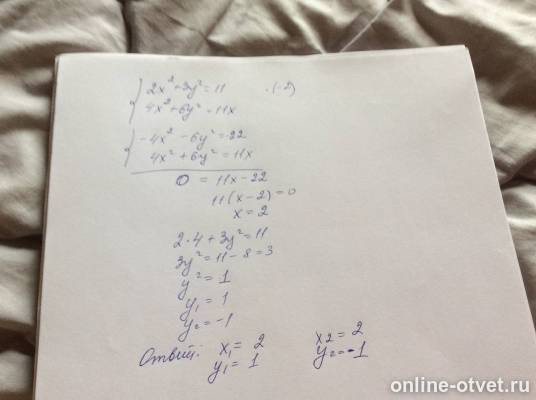 2x²+3y²=11 ·(-2)
4x²+6y²=11x
-4x²-6y²=-22
4x²+6y²=11x
0 = 11x-22
11(x-2)=0
x=2
2·4+3y²=11
3y²=11-8=3
y²=1
y₁=1
y₂=-1
Ответ: x₁=2 x2=2
y₁=1 y₂=-1
online-otvet.ru